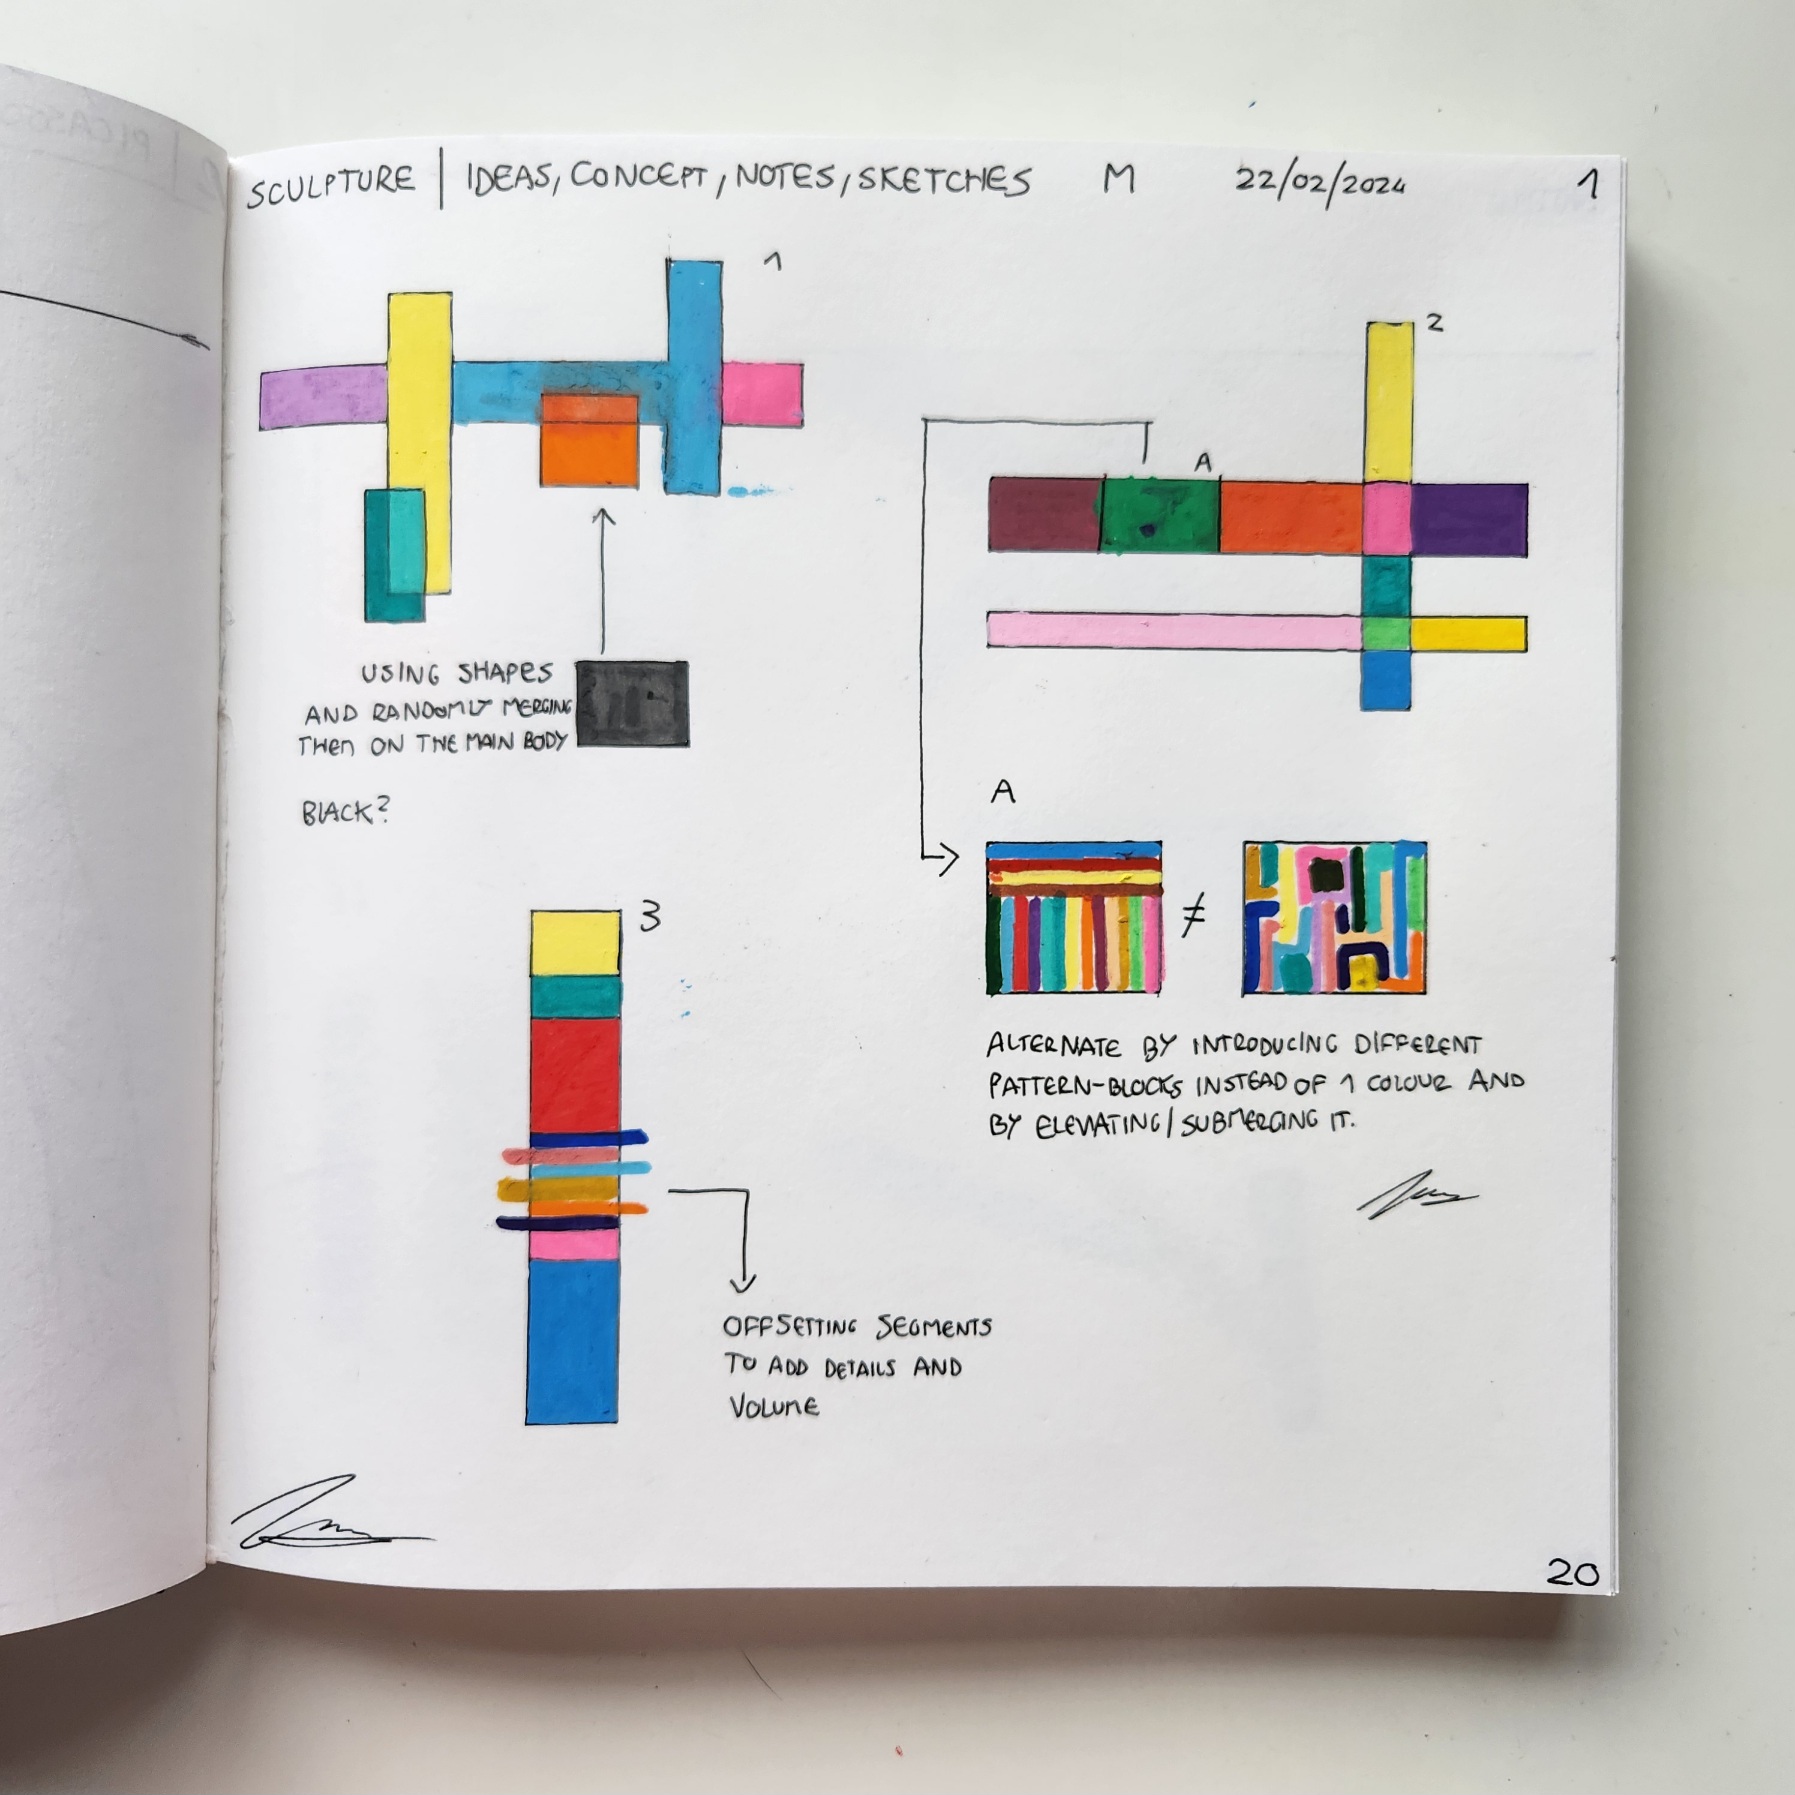 SCULPTURE | IDEAS, CONCEPT, NOTES, SKETCHES M 22/02/2024 1
1
2
A
USING SHAPES
AND RANDOMLY MERGING
THEN ON THE MAIN BODY
BLACK?
A
3
≠
ALTERNATE BY INTRODUCING DIFFERENT
PATTERN-BLOCKS INSTEAD OF 1 COLOUR AND
BY ELEVATING/SUBMERGING IT.
OFFSETTING SEGMENTS
TO ADD DETAILS AND
VOLUME
20
PICASSO